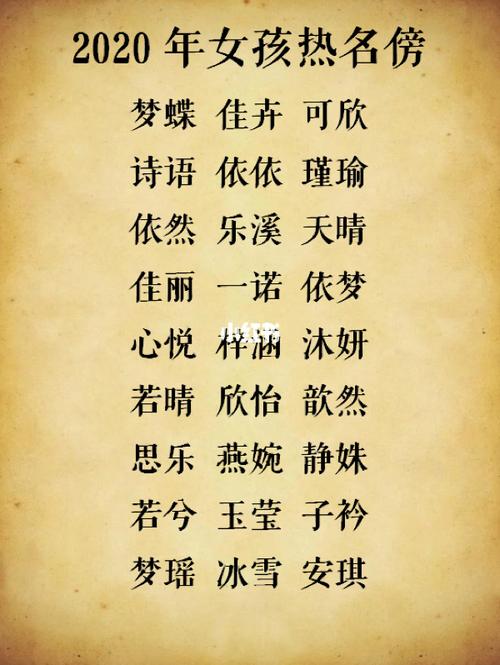 2020 年女孩热名傍
梦蝶 佳卉 可欣
诗语 依依 瑾瑜
依然 乐溪 天晴
佳丽 一诺 依梦
心悦 梓涵 沐妍
小红书
若晴 欣怡 歆然
思乐 燕婉 静姝
若兮 玉莹 子衿
梦瑶 冰雪 安琪